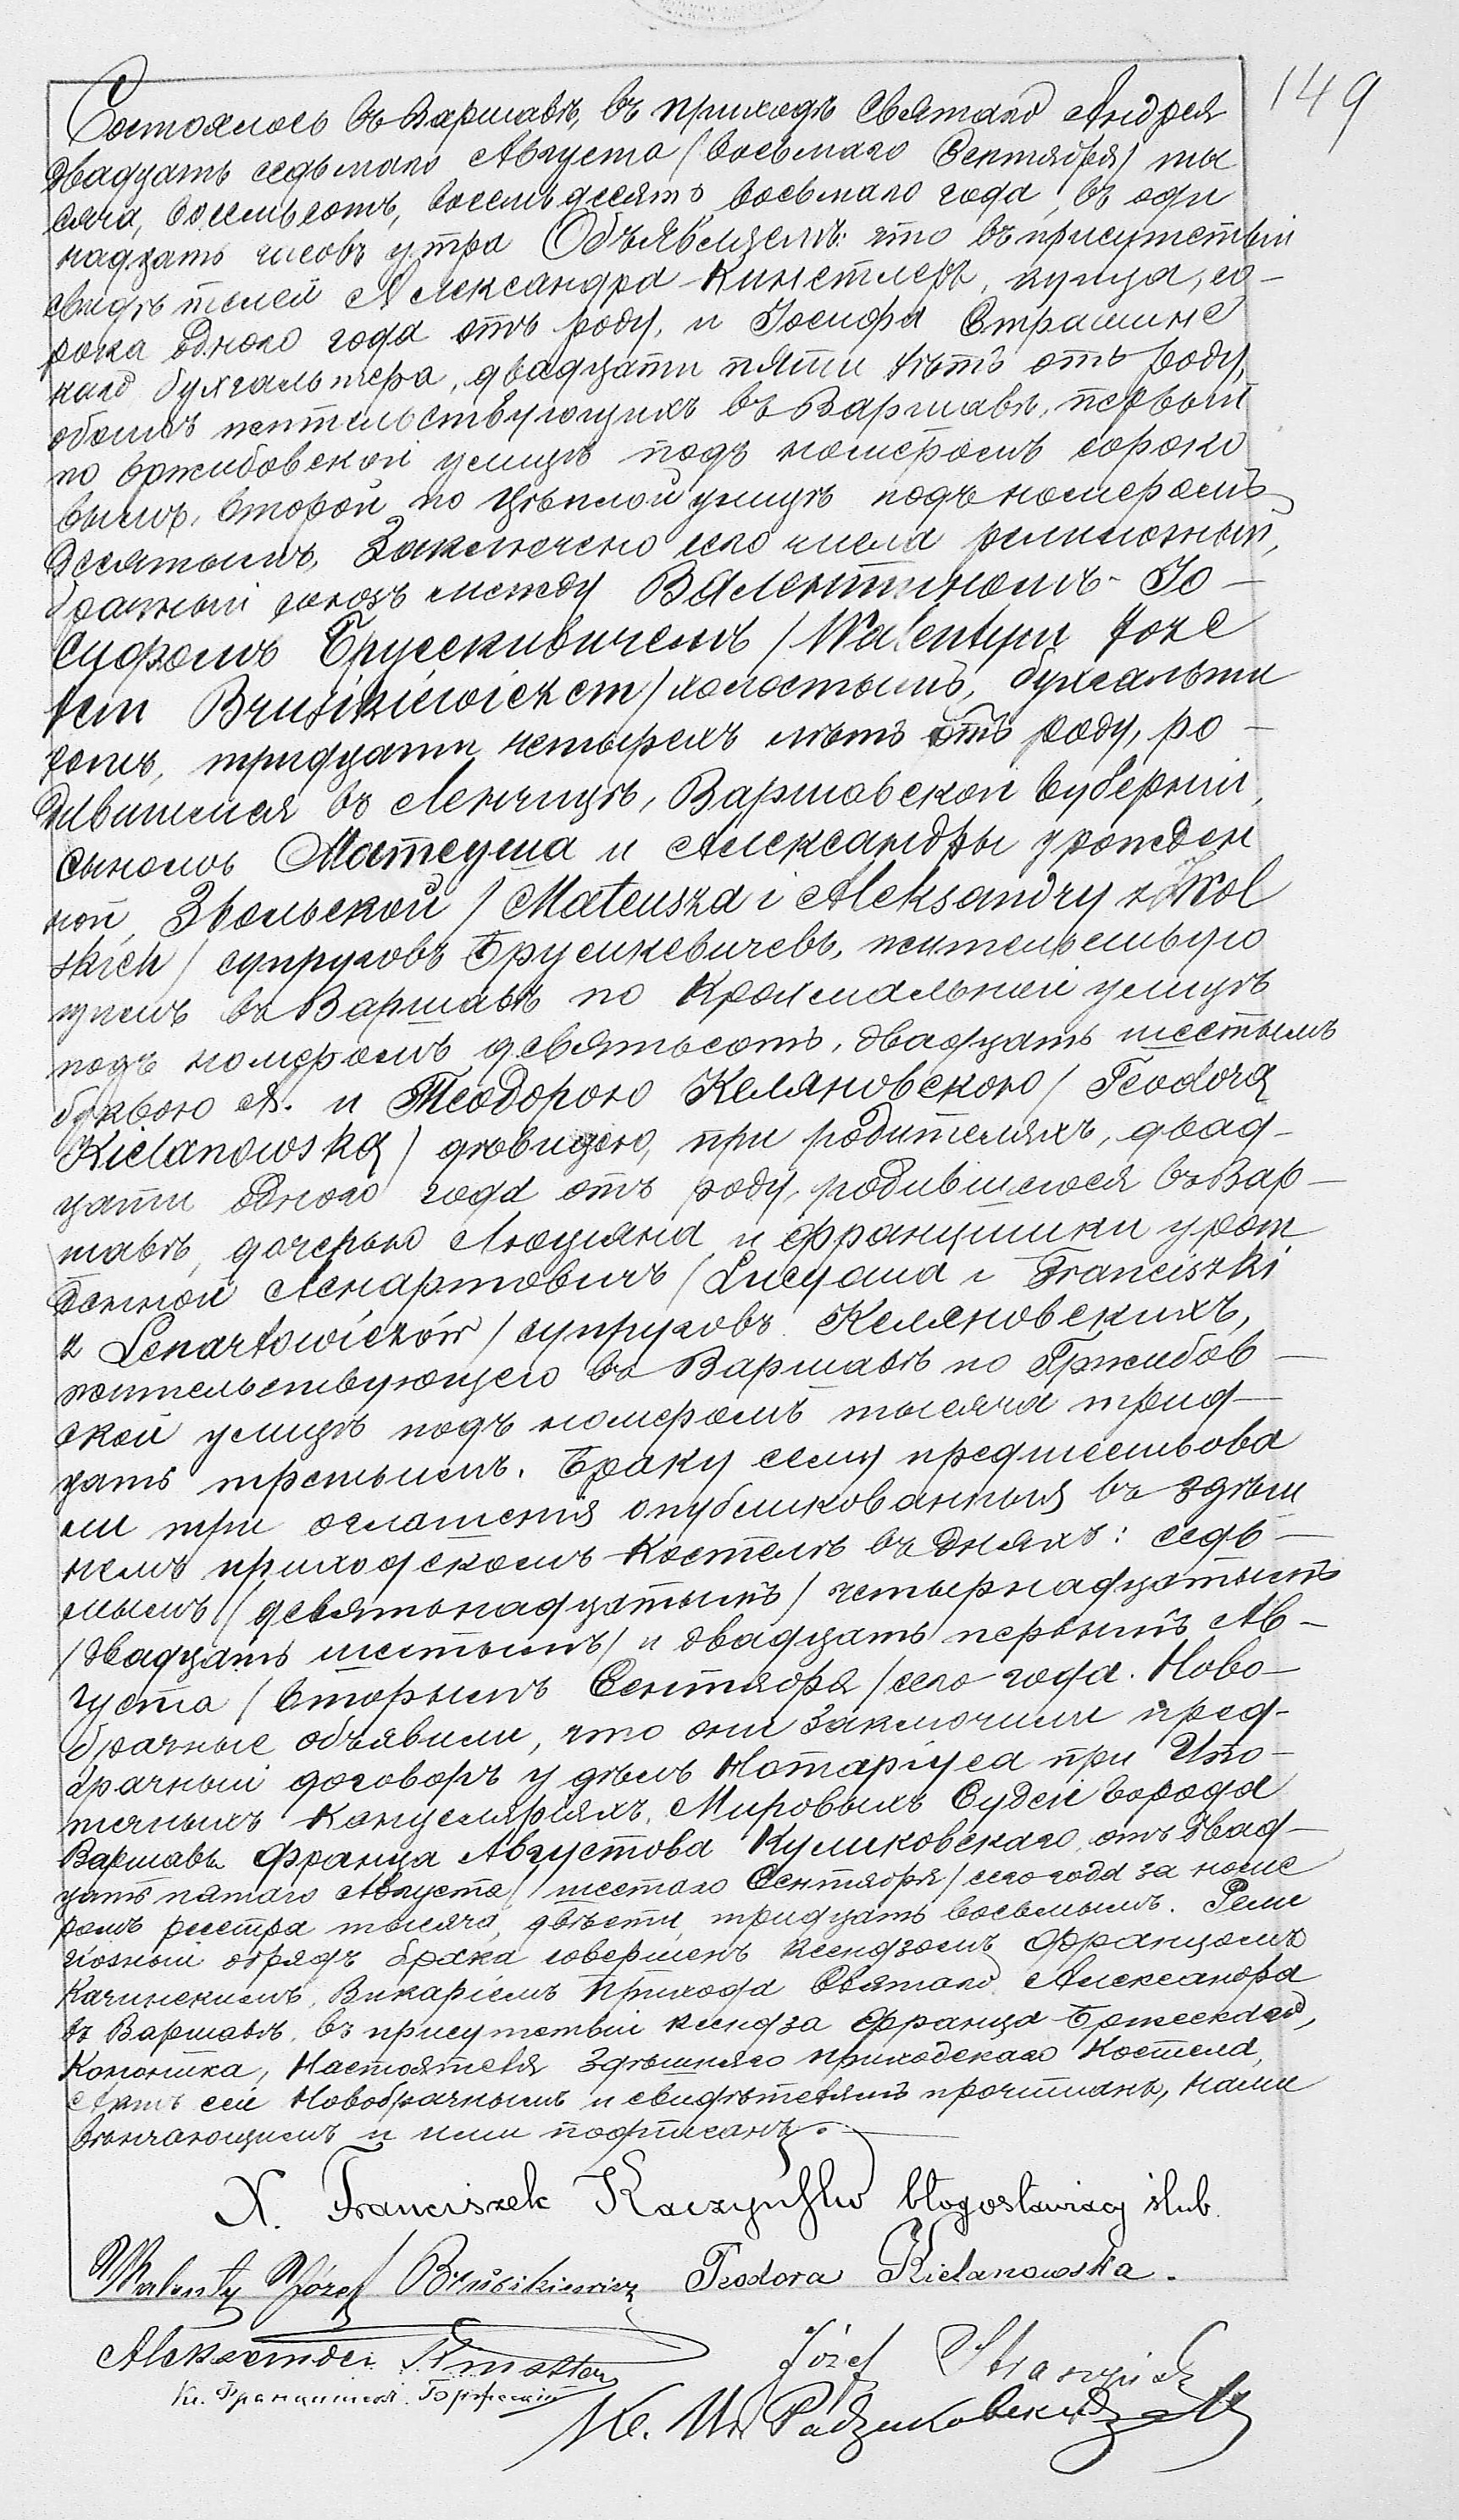 149
Состоялось въ Варшавѣ, въ приходѣ Святаго Андрея
двадцать седьмаго Августа (восьмаго Сентября) ты
сяча, восемьсотъ, восемьдесятъ восьмаго года, въ оди
надцать часовъ утра Объявляемъ: что въ присутствіи
свидѣтелей Александра Кинстлеръ, купца, со-
рока одного года отъ роду, и Іосифа
бухгальтера, двадцати пяти лѣтъ отъ роду,
обоихъ жительствующихъ въ Варшавѣ, первый
по Гржибовской улицѣ подъ номеромъ сороко
вымъ, второй по Цѣплой улицѣ подъ номеромъ
десятымъ, Заключено сего числа религіозный,
брачный союзъ между Валентиномъ-Іо-
сифомъ Брусикивичемъ (Walentym Joze
fem Bruśikiewiczem) холостымъ, бухгальте
ромъ, тридцати четырехъ лѣтъ отъ роду, ро-
дившимся въ Ленчицѣ, Варшавской Губерніи,
сыномъ Матеуша и Александры урожден
ной Звольской (Mateusza i Aleksandry z Zwol
skich) супруговъ Брусикевичевъ, жительствую
щимъ въ Варшавѣ по Крахмальной улицѣ
подъ номеромъ девятьсотъ, двадцать шестымъ
буквою А. и Теодорою Келяновскою (Teodorą
Kielanowską) дѣвицею, при родителяхъ, двад-
цати одного года отъ роду, родившеюся въ Вар-
шавѣ, дочерью Люцяна и Францишки урож
денной Ленартовичъ (Lucyana i Franciszki
z Lenartowiczów) супруговъ Келяновскихъ,
жительствующею въ Варшавѣ по Гржибов-
ской улицѣ подъ номеромъ тысяча трид-
цать третьимъ. Браку сему предшествова
ли три оглашенія опубликованныя въ здѣш
немъ приходскомъ Костелѣ въ дняхъ: седь-
мымъ (девятьнадцатымъ) четырнадцатымъ
(двадцать шестымъ) и двадцать первымъ Ав-
густа (вторымъ Сентября) сего года. Ново-
брачные объявили, что они заключили пред-
брачный договоръ у дѣлъ Нотаріуса при Ипо-
течныхъ Канцеляріяхъ, Мировыхъ Судей города
Варшавы Франца Августова Куликовскаго, отъ двад-
цать пятаго Августа (шестаго Сентября) сего года за номе
ромъ реестра тысяча, двѣсти, тридцать восьмымъ. Рели
гіозный обрядъ брака совершенъ Ксендзомъ Францомъ
Качинскимъ, Викаріемъ Прихода Святаго Александра
въ Варшавѣ, въ присутствіи ксендза Франца Бржескаго,
Каноника, Настоятеля здѣшняго приходскаго Костела,
Актъ сей Новобрачнымъ и свидѣтелямъ прочитанъ, нами
вѣнчающимъ и ими подписанъ.
X. Franciszek Kaczyński błogosławiący ślub.
Walenty Józef Bruśikiewicz Teodora Kielanowska.
Aleksander Kinstler Józef
Кс. Бржескій
Кс.